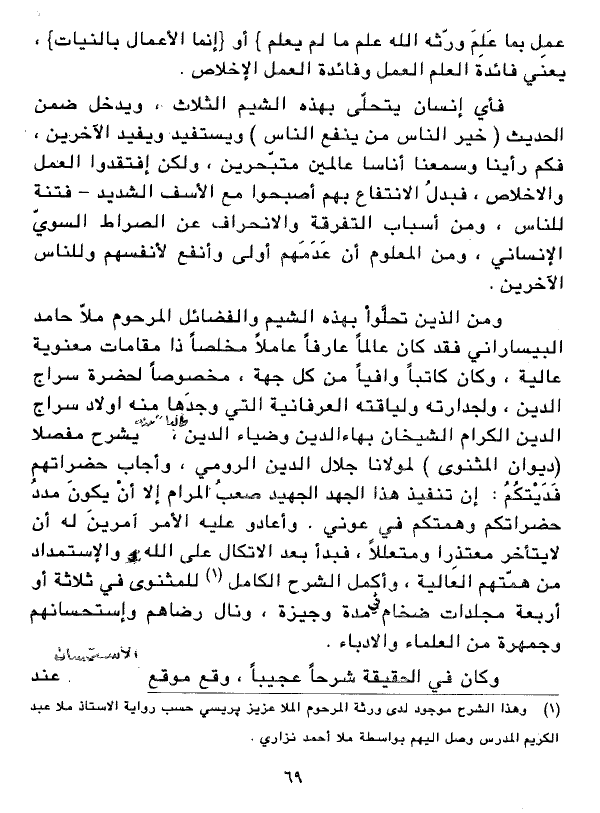 عمل بما عَلِمَ ورثه الله علم ما لم يعلم } أو {إنما الأعمال بالنيات} ،
يعني فائدة العلم العمل وفائدة العمل الإخلاص .
فأي إنسان يتحلّى بهذه الشيم الثلاث ، ويدخل ضمن
الحديث ( خير الناس من ينفع الناس ) ويستفيد ويفيد الآخرين ،
فكم رأينا وسمعنا أناسا عالمين متبحّرين ، ولكن إفتقدوا العمل
والاخلاص ، فبدلُ الانتفاع بهم أصبحوا مع الأسف الشديد – فتنة
للناس ، ومن أسباب التفرقة والانحراف عن الصراط السويّ
الإنساني ، ومن المعلوم أن عَدَمَهم أولى وأنفع لأنفسهم وللناس
الآخرين .
ومن الذين تحلَّوأ بهذه الشيم والفضائل المرحوم ملاّ حامد
البيساراني فقد كان عالماً عارفاً عاملاً مخلصاً ذا مقامات معنوية
عالية ، وكان كاتباً وافياً من كل جهة ، مخصوصاً لحضرة سراج
الدين ، ولجدارته ولياقته العرفانية التي وجدَها منه اولاد سراج
الدين الكرام الشيخان بهاءالدين وضياء الدين ، يشرح مفصلا
(ديوان المثنوى ) لمولانا جلال الدين الرومي ، وأجاب حضراتهم
فَدَيْتكُمُ : إن تنفيذ هذا الجهد الجهيد صعبُ المرام إلا أنْ يكونَ مددُ
حضراتكم وهمتكم في عوني . وأعادو عليه الأمر آمرينَ له أن
لايتأخر معتذرا ومتعللاً ، فبدأ بعد الاتكال على الله والإستمداد
من همّتهم العالية ، وأكمل الشرح الكامل (١) للمثنوى في ثلاثة أو
أربعة مجلدات ضخام في مدة وجيزة ، ونال رضاهم وإستحسانهم
وجمهرة من العلماء والادباء .
وكان في الحقيقة شرحاً عجيباً ، وقع موقع الاستحسان عند
(١) وهذا الشرح موجود لدى ورثة المرحوم الملا عزيز پريسي حسب رواية الاستاذ ملا عبد
الكريم المدرس وصل اليهم بواسطة ملا أحمد نزاري .
٦٩